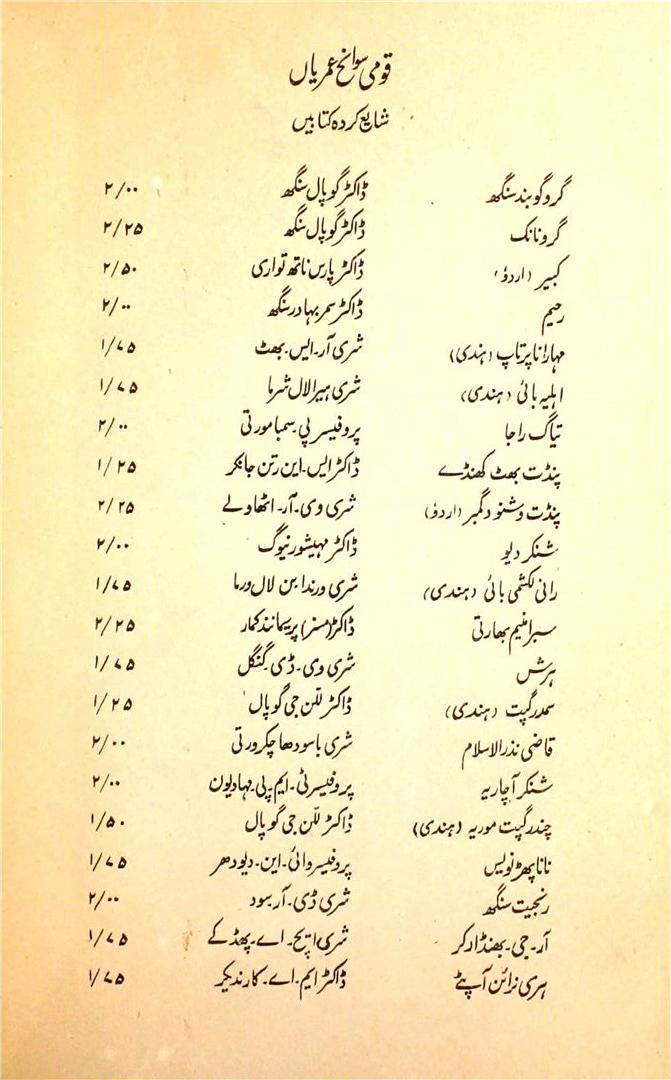 قومی سوانح عمریاں
شایع کردہ کتابیں
گرو گوبند سنگھ ڈاکٹر گوپال سنگھ ۲/۰۰
گرو نانک ڈاکٹر گوپال سنگھ ۲/۲۵
کبیر (اردو) ڈاکٹر پارس ناتھ تواری ۲/۵۰
رحیم ڈاکٹر سمر بہادر سنگھ ۲/۰۰
مہارانا پرتاپ (ہندی) شری آر۔ ایس۔ بھٹ ۱/۷۵
اہلیہ بائی (ہندی) شری ہیرا لال شرما ۱/۷۵
تیاگ راجا پروفیسر پی۔ سمبا مورتی ۲/۰۰
پنڈت بھٹ کھنڈے ڈاکٹر ایس۔ این رتن جانکر ۱/۲۵
پنڈت وشنو دگمبر (اردو) شری وی۔ آر۔ اٹھاولے ۲/۲۵
شنکر دیو ڈاکٹر مہیشور نیوگ ۲/۰۰
رانی لکشمی بائی (ہندی) شری ورندابن لال ورما ۱/۷۵
سبرامنیم بھارتی ڈاکٹر (مسز) پریمانند کمار ۲/۲۵
ہرش شری وی۔ ڈی۔ گنگل ۱/۷۵
سمدر گپت (ہندی) ڈاکٹر للّن جی گوپال ۱/۲۵
قاضی نذرالاسلام شری باسودھا چکرورتی ۲/۰۰
شنکر آچاریہ پروفیسر ٹی۔ ایم۔ پی۔ مہادیون ۲/۰۰
چندر گپت موریہ (ہندی) ڈاکٹر للّن جی گوپال ۱/۵۰
نانا پھڑنویس پروفیسر وائی۔ این۔ دیودھر ۱/۷۵
رنجیت سنگھ شری ڈی۔ آر۔ سود ۲/۰۰
آر۔ جی۔ بھنڈارکر شری ایچ۔ اے۔ پھڈکے ۱/۷۵
ہری نرائن آپٹے ڈاکٹر ایم۔ اے۔ کارندیکر ۱/۷۵